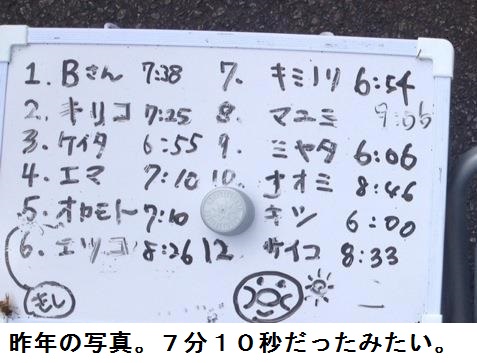 1. Bさん 7:38 7. キミノリ 6:54
2. キリコ 7:25 8. マユミ 9:06
3. ケイタ 6:55 9. ミヤタ 6:06
4. エマ 7:10 10. ナオミ 8:46
5. オカモト 7:10 キツ 6:00
6. エツコ 8:26 12 サイコ 8:33
昨年の写真。７分１０秒だったみたい。